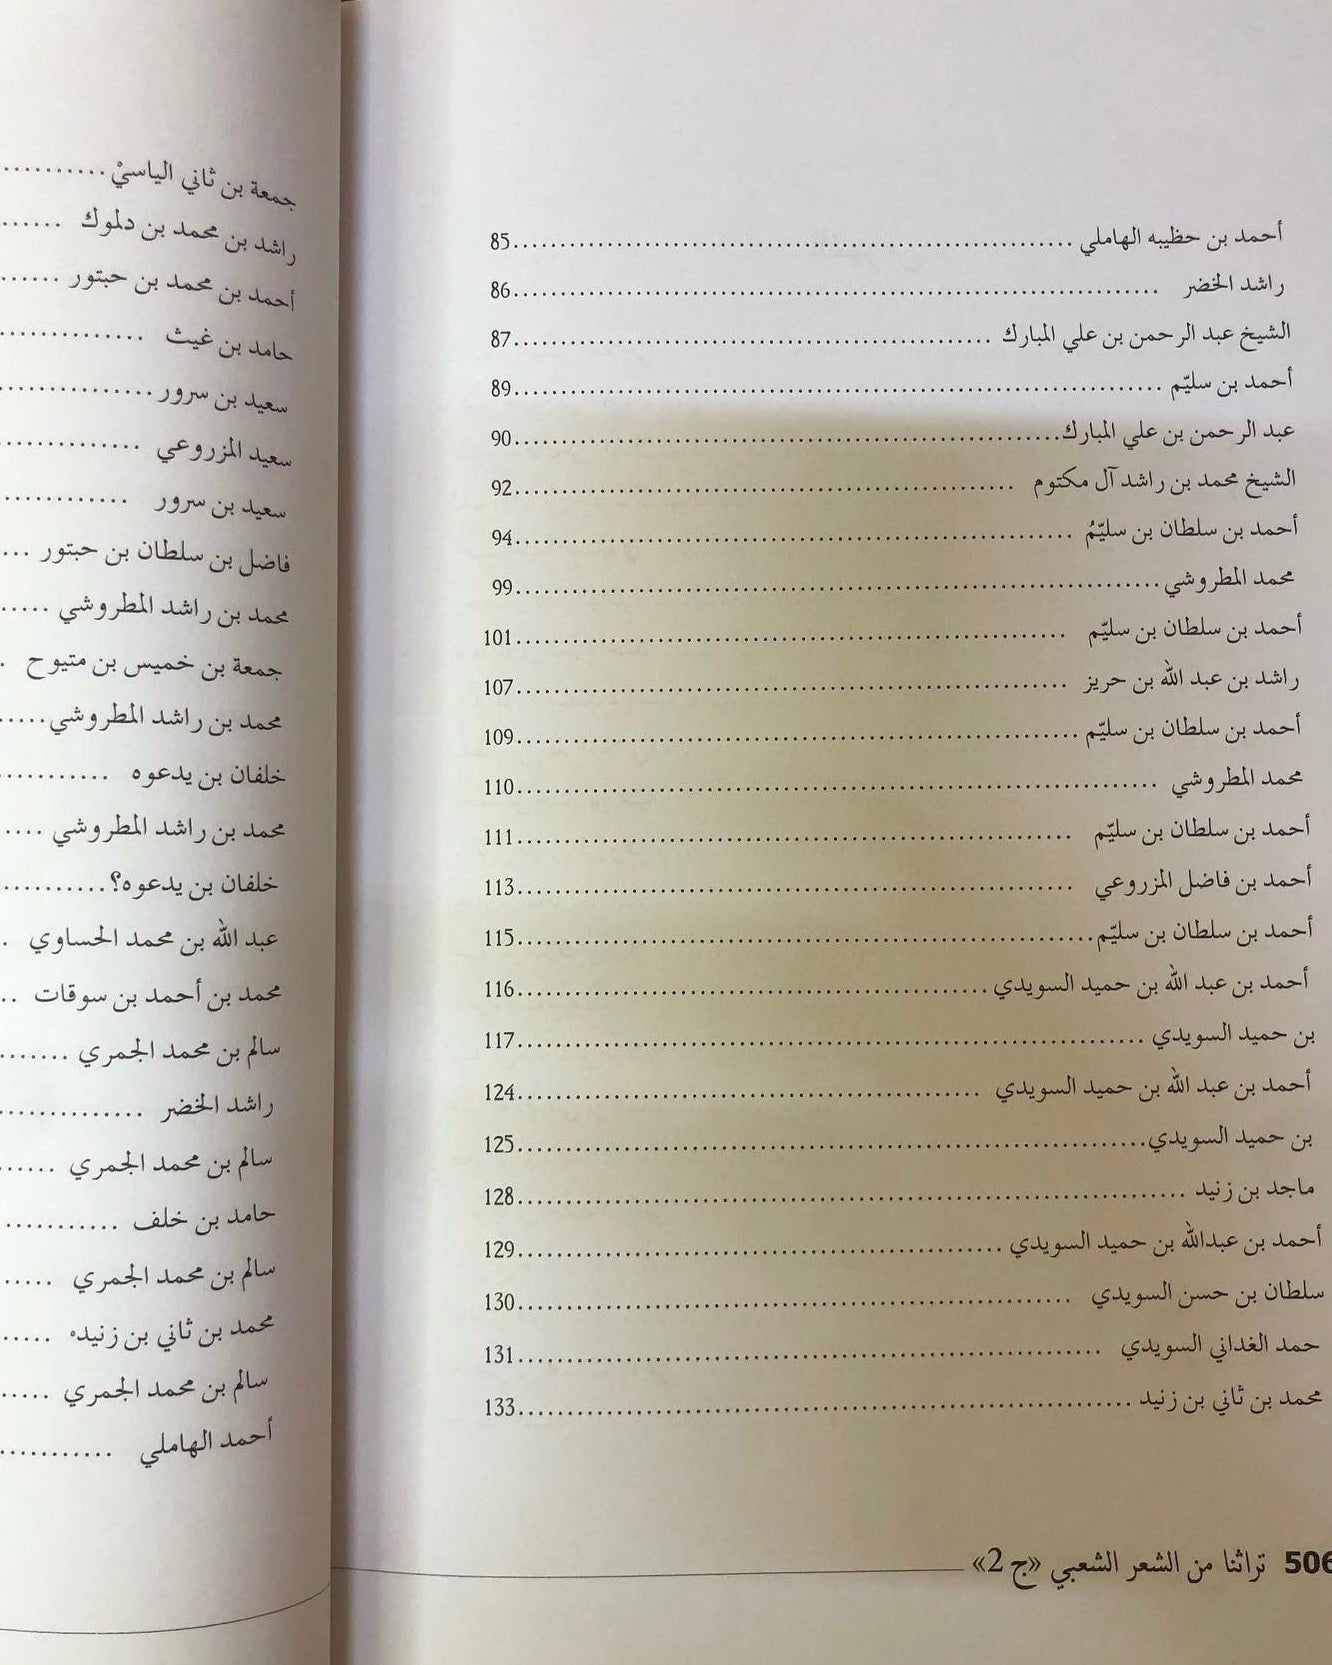 أحمد بن حظيبه الهاملي ........ 85
راشد الخضر ........ 86
الشيخ عبد الرحمن بن علي المبارك ........ 87
أحمد بن سليّم ........ 89
عبد الرحمن بن علي المبارك ........ 90
الشيخ محمد بن راشد آل مكتوم ........ 92
أحمد بن سلطان بن سليّمُ ........ 94
محمد المطروشي ........ 99
أحمد بن سلطان بن سليّم ........ 101
راشد بن عبد الله بن حريز ........ 107
أحمد بن سلطان بن سليّم ........ 109
محمد المطروشي ........ 110
أحمد بن سلطان بن سليّم ........ 111
أحمد بن فاضل المزروعي ........ 113
أحمد بن سلطان بن سليّم ........ 115
أحمد بن عبد الله بن حميد السويدي ........ 116
بن حميد السويدي ........ 117
أحمد بن عبد الله بن حميد السويدي ........ 124
بن حميد السويدي ........ 125
ماجد بن زنيد ........ 128
أحمد بن عبدالله بن حميد السويدي ........ 129
سلطان بن حسن السويدي ........ 130
حمد الغداني السويدي ........ 131
محمد بن ثاني بن زنيد ........ 133
506 تراثنا من الشعر الشعبي «ج 2»
جمعة بن ثاني الياسيْ ........
راشد بن محمد بن دلموك ........
أحمد بن محمد بن حبتور ........
حامد بن غيث ........
سعيد بن سرور ........
سعيد المزروعي ........
سعيد بن سرور ........
فاضل بن سلطان بن حبتور ...
محمد بن راشد المطروشي .....
جمعة بن خميس بن متيوح .
محمد بن راشد المطروشي .....
خلفان بن يدعوه ........
محمد بن راشد المطروشي ....
خلفان بن يدعوه؟ ........
عبد الله بن محمد الحساوي .
محمد بن أحمد بن سوقات ..
سالم بن محمد الجمري .......
راشد الخضر ........
سالم بن محمد الجمري ......
حامد بن خلف ........
سالم بن محمد الجمري .....
محمد بن ثاني بن زنيده .....
سالم بن محمد الجمري .....
أحمد الهاملي ........